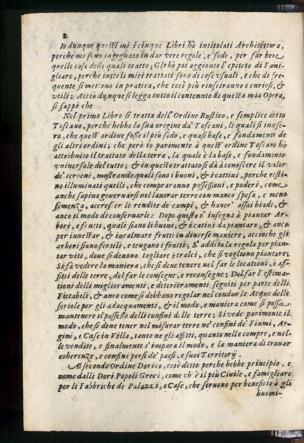 2
Io dunque questi miei cinque Libri hò intitolati Architettura,
perche mi sono ingegnato in dar vere regole, e sode, per far bene
quelle cose delle quali tratto: Gli hò poi aggionto l'epiteto di Fami-
gliare, perche tutti li miei trattati sono di cose vsuali, e che di fre-
quente si mettono in pratica, che così più riusciranno e curiosi, &
vtili; Acciò dunque si legga tutto il contenuto di questa mia Opera,
si sappi che
Nel primo Libro si tratta dell'Ordine Rustico, e semplice detto
Toscano, perche hebbe la sua origine da' Toscani, li quali s'inuesti-
ro, che quest'ordine fusse il più sodo, e quasi base, e fondamento de
gli altri ordini; che però io parimente à quest'ordine Toscano hò
attribuito il trattato della terra, la quale è la base, e fondamento
vniuersale del tutto; & in questo trattato si dà à conoscere il valor
de' terreni, mostrando quali sono i buoni, & i cattiui, perche resti-
no illuminati quelli, che compraranno possessioni, e poderi, come
anche sapino gouernarsi nel lauorar terre con manco spesa, e meno
semenza, accrescer le rendite de' campi, & hauer' assai biade, &
anco ti modo di conseruarle: Dopo questo s'insegna à piantar Ar-
bori, e frutti, quali siano li buoni, & i cattiui da piantare, & anco
per innestar, & incalmare frutti in diuerse maniere, acciochè gli
arbori siano fertili, e tengano i frutti. S'addita la regola per pian-
tar viti, doue si deuono tagliare i tralci, che si vogliono piantare;
Si fà vedere la maniera, che si deue tenere nel far le locationi, e af-
fitti delle terre, del far le consegne, e reconsegne; Del far l'estima-
tioni delli miglioramenti, e deterioramenti seguiti per parte delli
Fittabili, & anco come si debbano regolar nel condur le Acque delle
seriole per gli adacquamenti, & il modo, e maniera come si possa
mantenere il possesso delli confini delle terre; Si vede parimente il
modo, che si deue tener nel misurar terre ne' confini de' Fiumi, Ar-
gini, e Case in Villa, tanto ne gli affitti, quanto nelle compre, e nel-
le vendite, e finalmente s'impara il modo, e la maniera di trouar
coherenze, e confini persi de' paesi, e suoi Territorij.
Al secondo Ordine Dorico, così detto perche hebbe principio, e
nome dalli Dori Popoli Greci, come ch'è il più Ciuile, e famigliare
per le Fabbriche di Palazzi, e Case, che seruono per beneficio à gli
huomi-